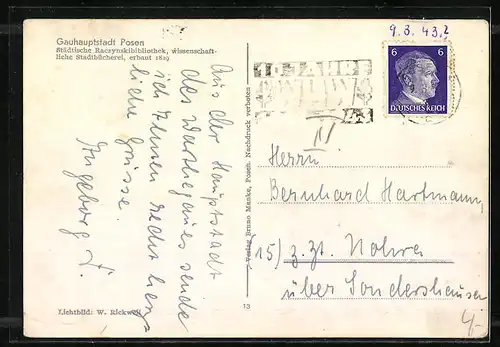 Gauhauptstadt Posen
Städtische Raczynskibibliothek, wissenschaft-
liche Stadtbücherei, erbaut 1829
9.3.43.2
6 6
DEUTSCHES REICH
10 JAHRE
WHW
Aus der Hauptstadt
des Warthegaues sende
ich Ihnen recht herz-
liche Grüsse.
Ingeborg L.
Verlag Bruno Manke, Posen. Nachdruck verboten
13
Herrn
Bernhard Hartmann,
(15) z.Zt. Nohra
über Sondershausen
Lichtbild: W. Rickwell